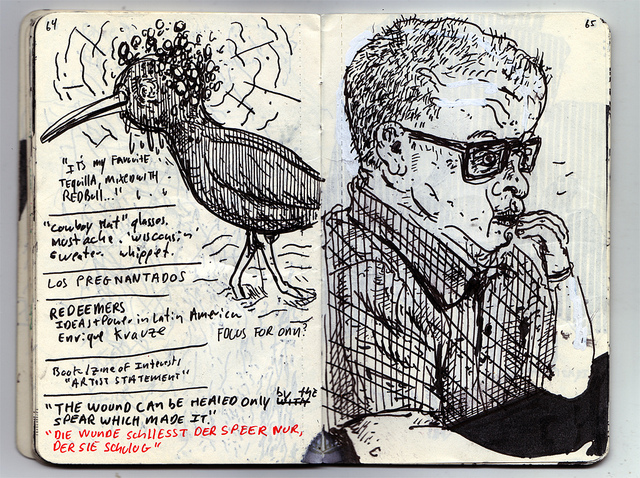 64
65
"IT'S my FAVORITE
TEQUILLA, MIXED WITH
REDBULL..."
"cowboy Hat" glasses.
mustache. 'wisconsin'
sweater. whippet.
LOS PREGNANTADOS
REDEEMERS
IDEAS + Power in Latin America
Enrique Krauze
FOCUS FOR
Book/zine of Interests
"ARTIST STATEMENT"
"THE WOUND CAN BE HEALED ONLY by the
SPEAR WHICH MADE IT."
"DIE WUNDE SCHLIESST DER SPEER NUR,
DER SIE SCHLUG"